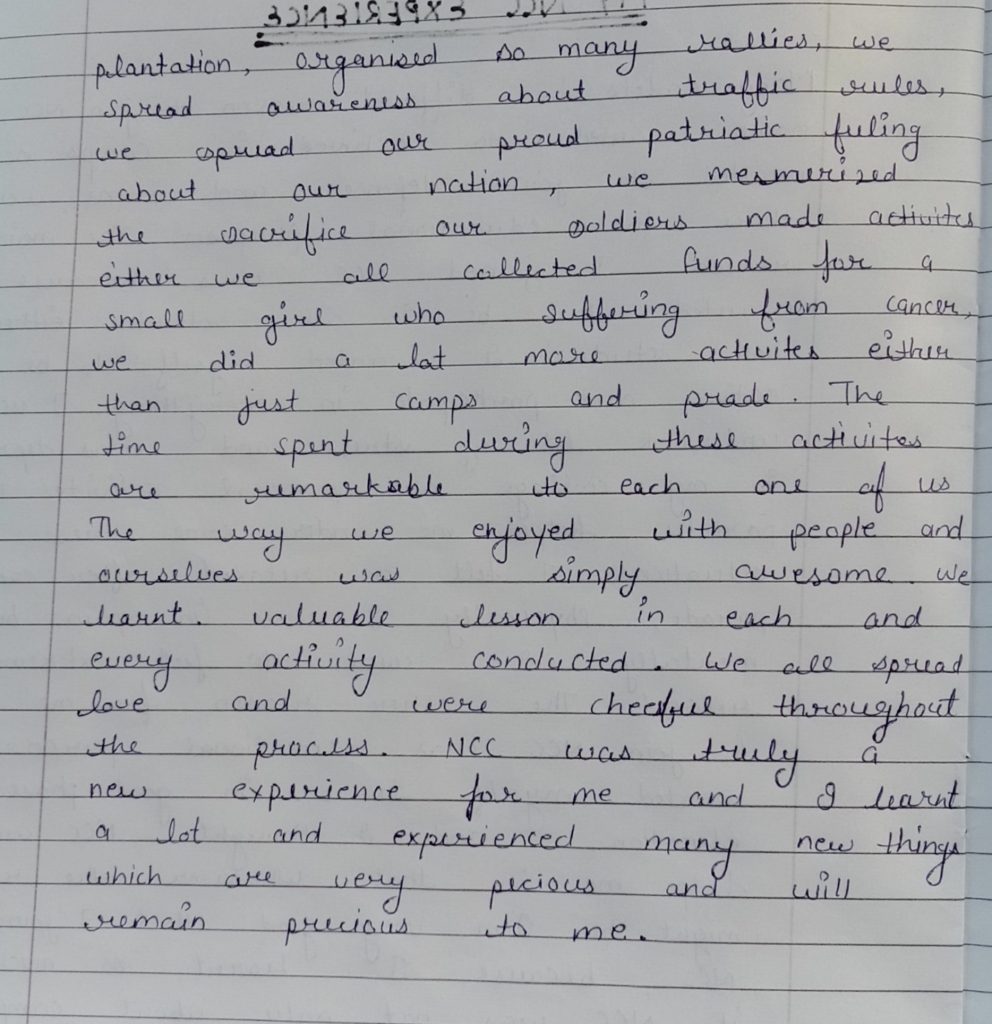 plantation, organised so many rallies, we
spread awareness about traffic rules,
we spread our proud patriatic fuling
about our nation, we mesmerized
the sacrifice our soldiers made activites
either we all collected funds for a
small girl who suffering from cancer,
we did a lot more activites either
than just camps and prade. The
time spent during these activites
are remarkable to each one of us
The way we enjoyed with people and
ourselves was simply awesome. We
learnt. valuable lesson in each and
every activity conducted. We all spread
love and were cheerful throughout
the process. NCC was truly a
new experience for me and I learnt
a lot and experienced many new things
which are very pecious and will
remain precious to me.